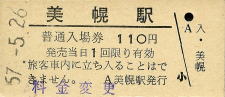 美幌駅
普通入場券 110円
発売当日1回限り有効
旅客車内に立ち入ることはで
きません。 A美幌駅発行
料金変更
57.-5.26
A
入
・
美幌
小